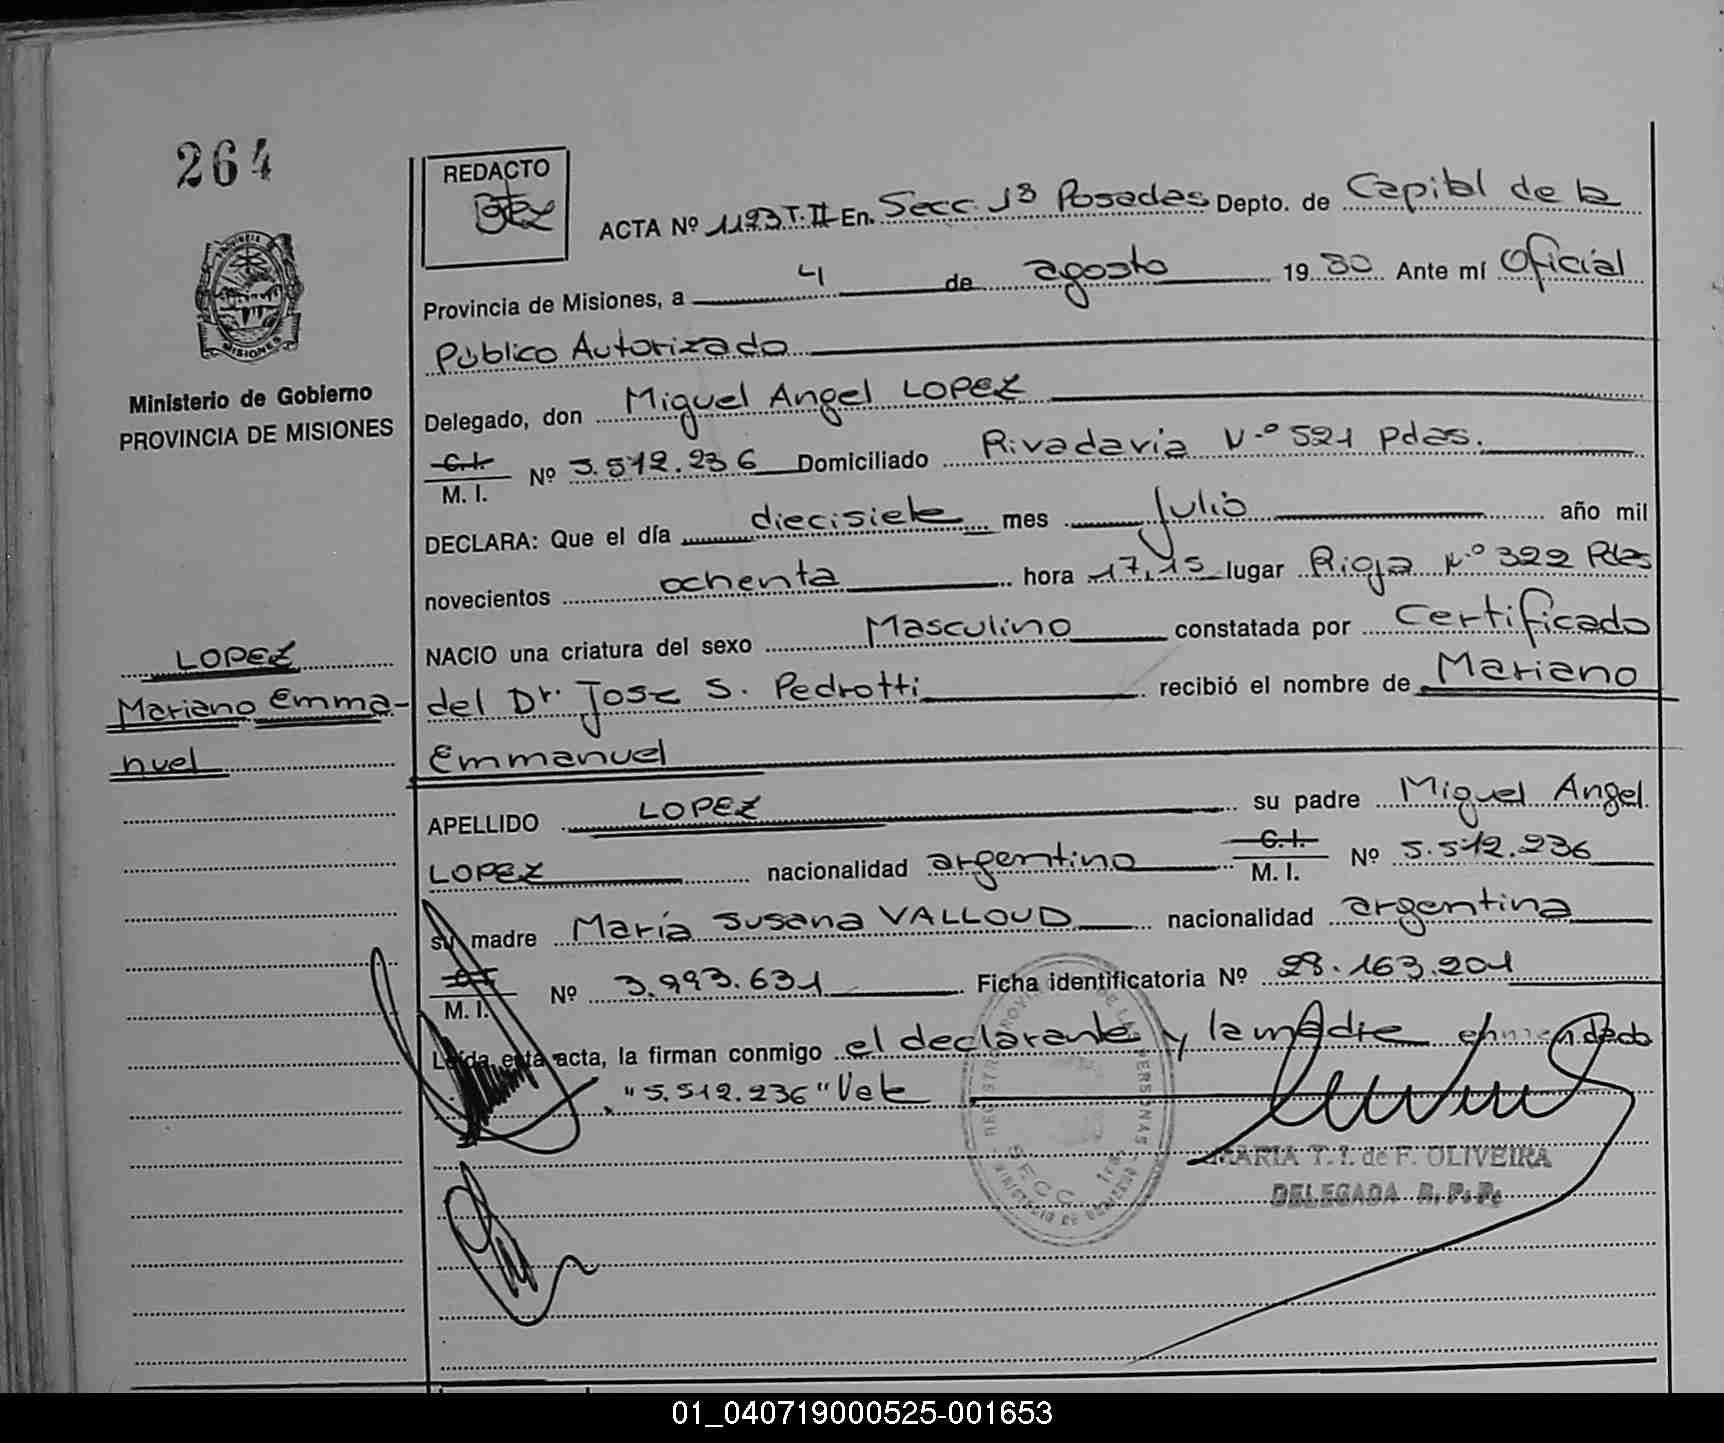 264
REDACTO
ACTA Nº 1193 T. II En. Secc. 1ª Posadas Depto. de Capital de la
Provincia de Misiones, a 4 de agosto 1980 Ante mí Oficial
Público Autorizado
Ministerio de Gobierno
PROVINCIA DE MISIONES
Delegado, don Miguel Angel LOPEZ
C.I.
M. I. Nº 5.512.236 Domiciliado Rivadavia N.º 521 Pdas.
DECLARA: Que el día diecisiete mes julio año mil
novecientos ochenta hora 17,15 lugar Rioja N.º 322 Pdas
NACIO una criatura del sexo Masculino constatada por Certificado
del Dr. Jose S. Pedrotti recibió el nombre de Mariano
Emmanuel
LOPEZ
Mariano Emma-
nuel
APELLIDO LOPEZ su padre Miguel Angel
LOPEZ nacionalidad argentino C.I. M. I. Nº 5.512.236
su madre María Susana VALLOUD nacionalidad argentina
C.I.
M. I. Nº 3.993.631 Ficha identificatoria Nº 28.163.201
Leída esta acta, la firman conmigo el declarante y la madre enmendado
"5.512.236" Vale
MARIA T. I. de F. OLIVEIRA
DELEGADA R. P. P.
01_040719000525-001653